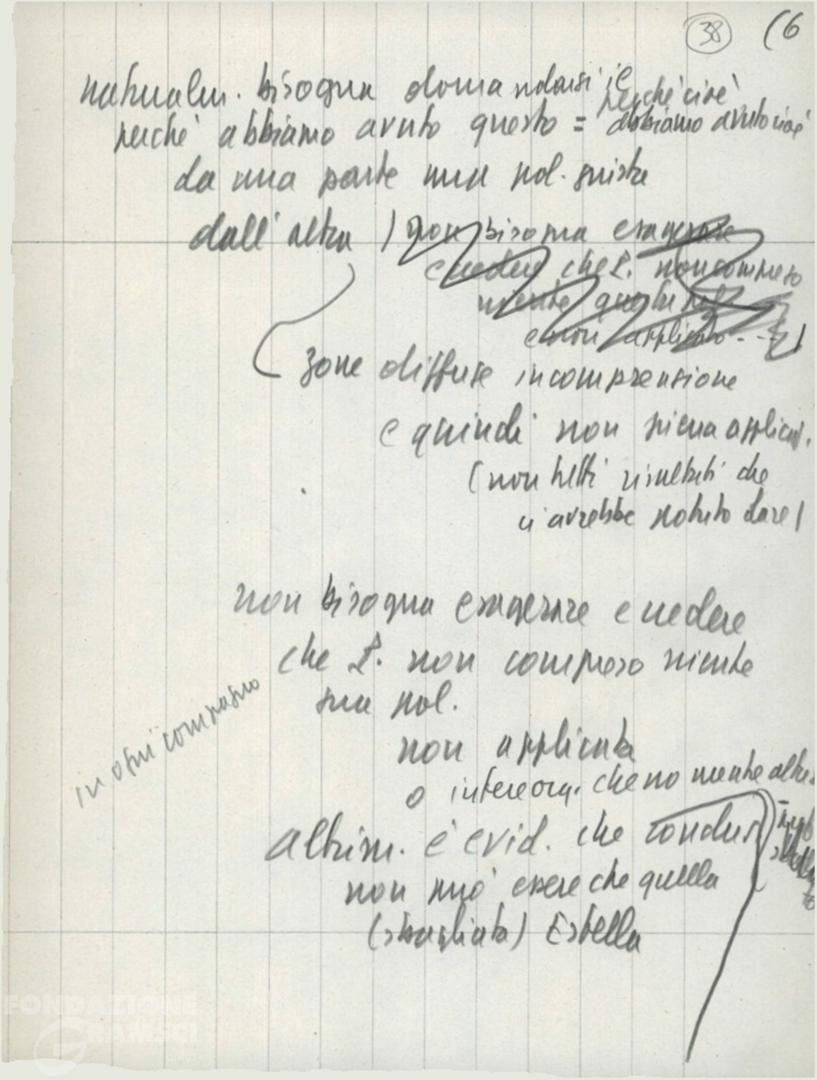 38 (6
naturalm. bisogna domandarsi
perchè cioè
perchè abbiamo avuto questo = abbiamo avuto cioè
da una parte una pol. giusta
dall'altra
(non bisogna esagerare
e vedere che P. non compreso
niente
e non applicato ... )
zone diffuse incomprensione
e quindi non piena applicaz.
(non tutti risultati che
ci avrebbe potuto dare)
non bisogna esagerare e vedere
che P. non compreso niente
sua pol.
in ogni compagno
non applicata
o intere org. che no mente
altrim. è evid. che
non può essere che quella
(sbagliata) Estella
FONDAZIONE
GRAMSCI